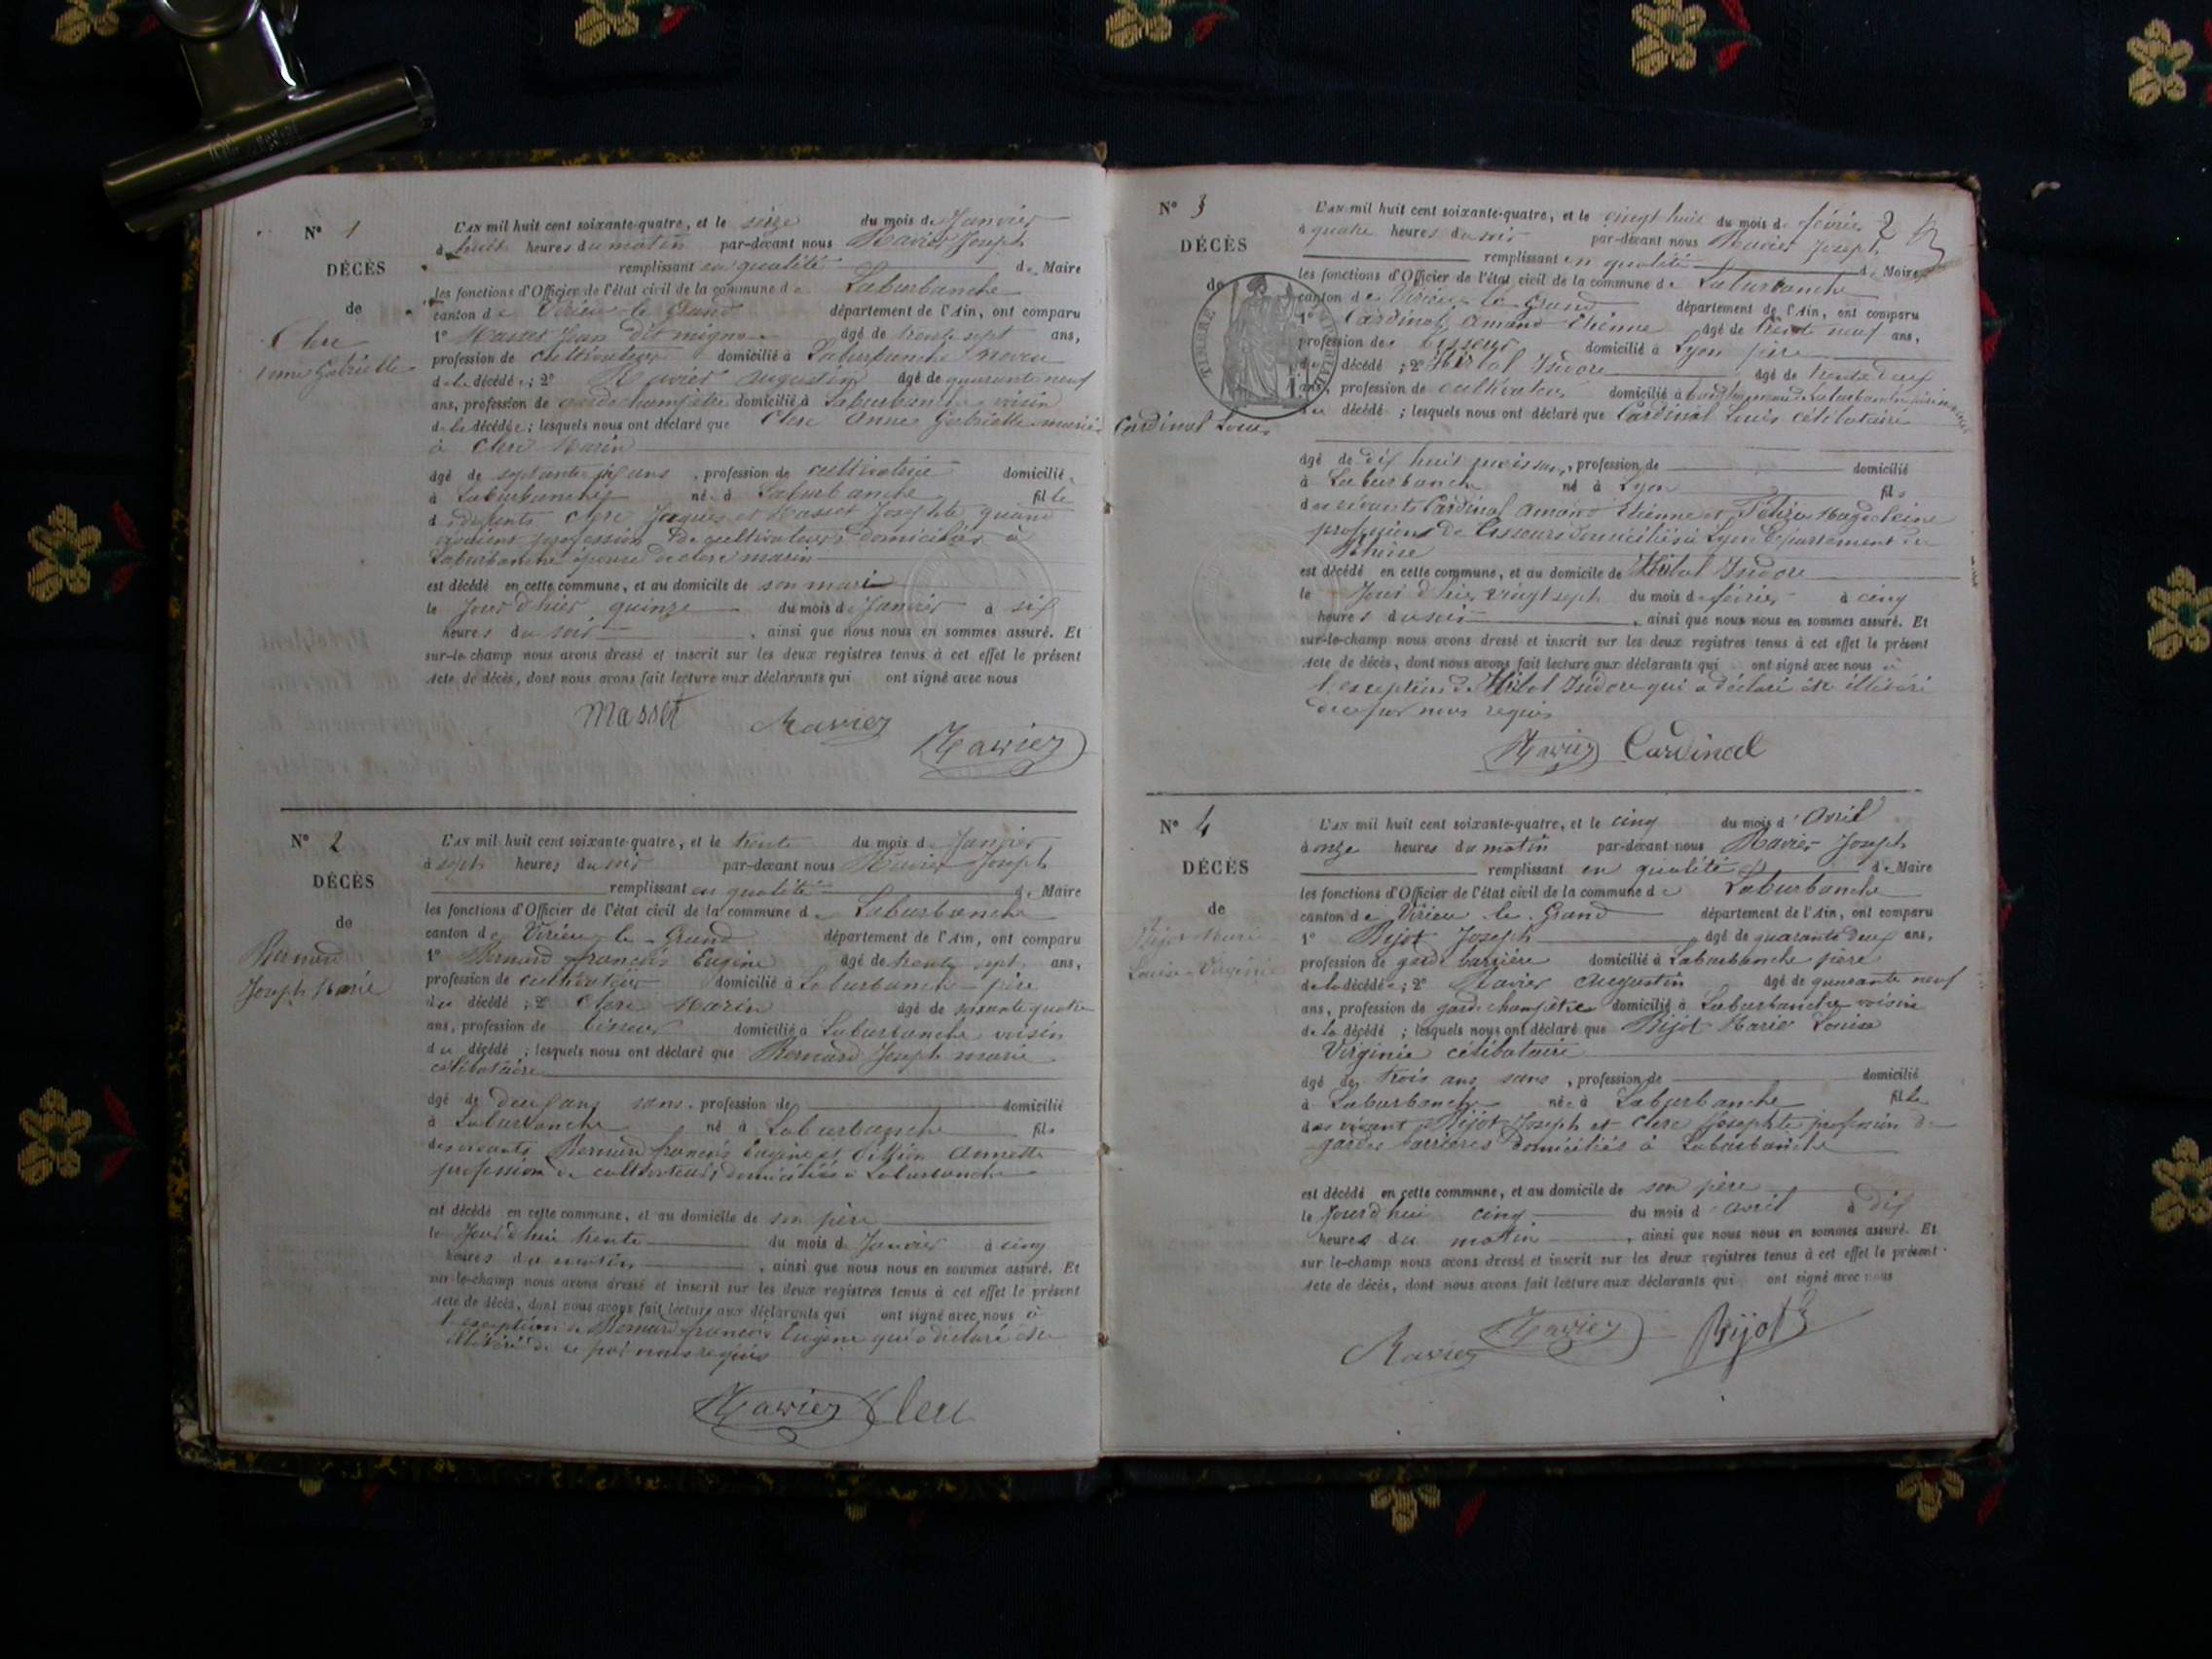 N° 1
DÉCÈS
de
Clerc
anne Gabrielle
L'AN mil huit cent soixante-quatre, et le seize du mois de Janvier
à huit heures du matin par-devant nous Ravier Joseph
remplissant en qualité de Maire
les fonctions d'Officier de l'état civil de la commune de Laburbanche
canton de Virieu le Grand département de l'Ain, ont comparu
1° Masset Jean dit âgé de trente sept ans,
profession de cultivateur domicilié à Laburbanche neveu
de la décédée; 2° Ravier augustin âgé de quarante neuf
ans, profession de garde champêtre domicilié à Laburbanche voisin
de la décédée; lesquels nous ont déclaré que Clerc Anne Gabrielle mariée
à Clerc Marin
âgé de septante six ans, profession de cultivatrice domiciliée
à Laburbanche née à Laburbanche fille
de défunts Clerc Jaques et Masset Josephte quand
vivaient profession de cultivateurs domiciliés à
Laburbanche épouse de clerc marin
est décédé en cette commune, et au domicile de son mari
le Jour d'hier quinze du mois de Janvier à six
heures du soir, ainsi que nous nous en sommes assuré. Et
sur-le-champ nous avons dressé et inscrit sur les deux registres tenus à cet effet le présent
acte de décès, dont nous avons fait lecture aux déclarants qui ont signé avec nous
Masset Ravier Ravier
N° 2
DÉCÈS
de
Bernard
Joseph Marie
L'AN mil huit cent soixante-quatre, et le trente du mois de Janvier
à sept heures du soir par-devant nous Ravier Joseph
remplissant en qualité de Maire
les fonctions d'Officier de l'état civil de la commune de Laburbanche
canton de Virieu le Grand département de l'Ain, ont comparu
1° Bernard françois Eugène âgé de trente sept ans,
profession de cultivateur domicilié à Laburbanche père
du décédé; 2° Clerc Marin âgé de soixante quatre
ans, profession de tisseur domicilié à Laburbanche voisin
du décédé; lesquels nous ont déclaré que Bernard Joseph marie
célibataire
âgé de deux ans sans, profession de domicilié
à Laburbanche né à Laburbanche fils
des vivants Bernard françois Eugène et Annette
profession de cultivateurs domiciliés à Laburbanche
est décédé en cette commune, et au domicile de son père
le Jourd'hui trente du mois de Janvier à cinq
heures du matin, ainsi que nous nous en sommes assuré. Et
sur-le-champ nous avons dressé et inscrit sur les deux registres tenus à cet effet le présent
acte de décès, dont nous avons fait lecture aux déclarants qui ont signé avec nous à
l'exception de Bernard françois Eugène qui a déclaré être
illétéré de ce par nous requis
Ravier Clerc
N° 3
2
DÉCÈS
de
TIMBRE IMPERIAL
Cardinal Louis
L'AN mil huit cent soixante-quatre, et le vingt huit du mois de févrié
à quatre heures du soir par-devant nous Ravier Joseph
remplissant en qualité de Maire
les fonctions d'Officier de l'état civil de la commune de Laburbanche
canton de Virieu le Grand département de l'Ain, ont comparu
1° Cardinal amand Etienne âgé de trente neuf ans,
profession de tisseur domicilié à Lyon père
du décédé; 2° Isidore âgé de trente
ans, profession de cultivateur domicilié à
du décédé; lesquels nous ont déclaré que Cardinal Louis célibataire
âgé de dix huit mois sans, profession de domicilié
à Laburbanche né à Lyon fils
des vivants Cardinal amand Etienne et Magdeleine
profession de tisseurs domiciliés à Lyon département du
Rhône
est décédé en cette commune, et au domicile de Isidore
le Jour d'hier vingt sept du mois de févrié à cinq
heures du soir, ainsi que nous nous en sommes assuré. Et
sur-le-champ nous avons dressé et inscrit sur les deux registres tenus à cet effet le présent
acte de décès, dont nous avons fait lecture aux déclarants qui ont signé avec nous à
l'exception de Isidore qui a déclaré être illétéré
de ce par nous requis
Ravier Cardinal
N° 4
DÉCÈS
de
Bijot Marie
Louise Virginie
L'AN mil huit cent soixante-quatre, et le cinq du mois d'Avril
à onze heures du matin par-devant nous Ravier Joseph
remplissant en qualité de Maire
les fonctions d'Officier de l'état civil de la commune de Laburbanche
canton de Virieu le Grand département de l'Ain, ont comparu
1° Bijot Joseph âgé de quarante deux ans,
profession de garde barrière domicilié à Laburbanche père
de la décédée; 2° Ravier Augustin âgé de quarante neuf
ans, profession de garde champêtre domicilié à Laburbanche voisin
de la décédé; lesquels nous ont déclaré que Bijot Marie Louise
Virginie célibataire
âgé de trois ans sans, profession de domicilié
à Laburbanche née à Laburbanche fille
des vivant Bijot Joseph et Clerc Josephte profession de
gardes barrières domiciliés à Laburbanche
est décédé en cette commune, et au domicile de son père
le Jourd'hui cinq du mois d'avril à dix
heures du matin, ainsi que nous nous en sommes assuré. Et
sur le-champ nous avons dressé et inscrit sur les deux registres tenus à cet effet le présent
acte de décès, dont nous avons fait lecture aux déclarants qui ont signé avec nous
Ravier Ravier Bijot